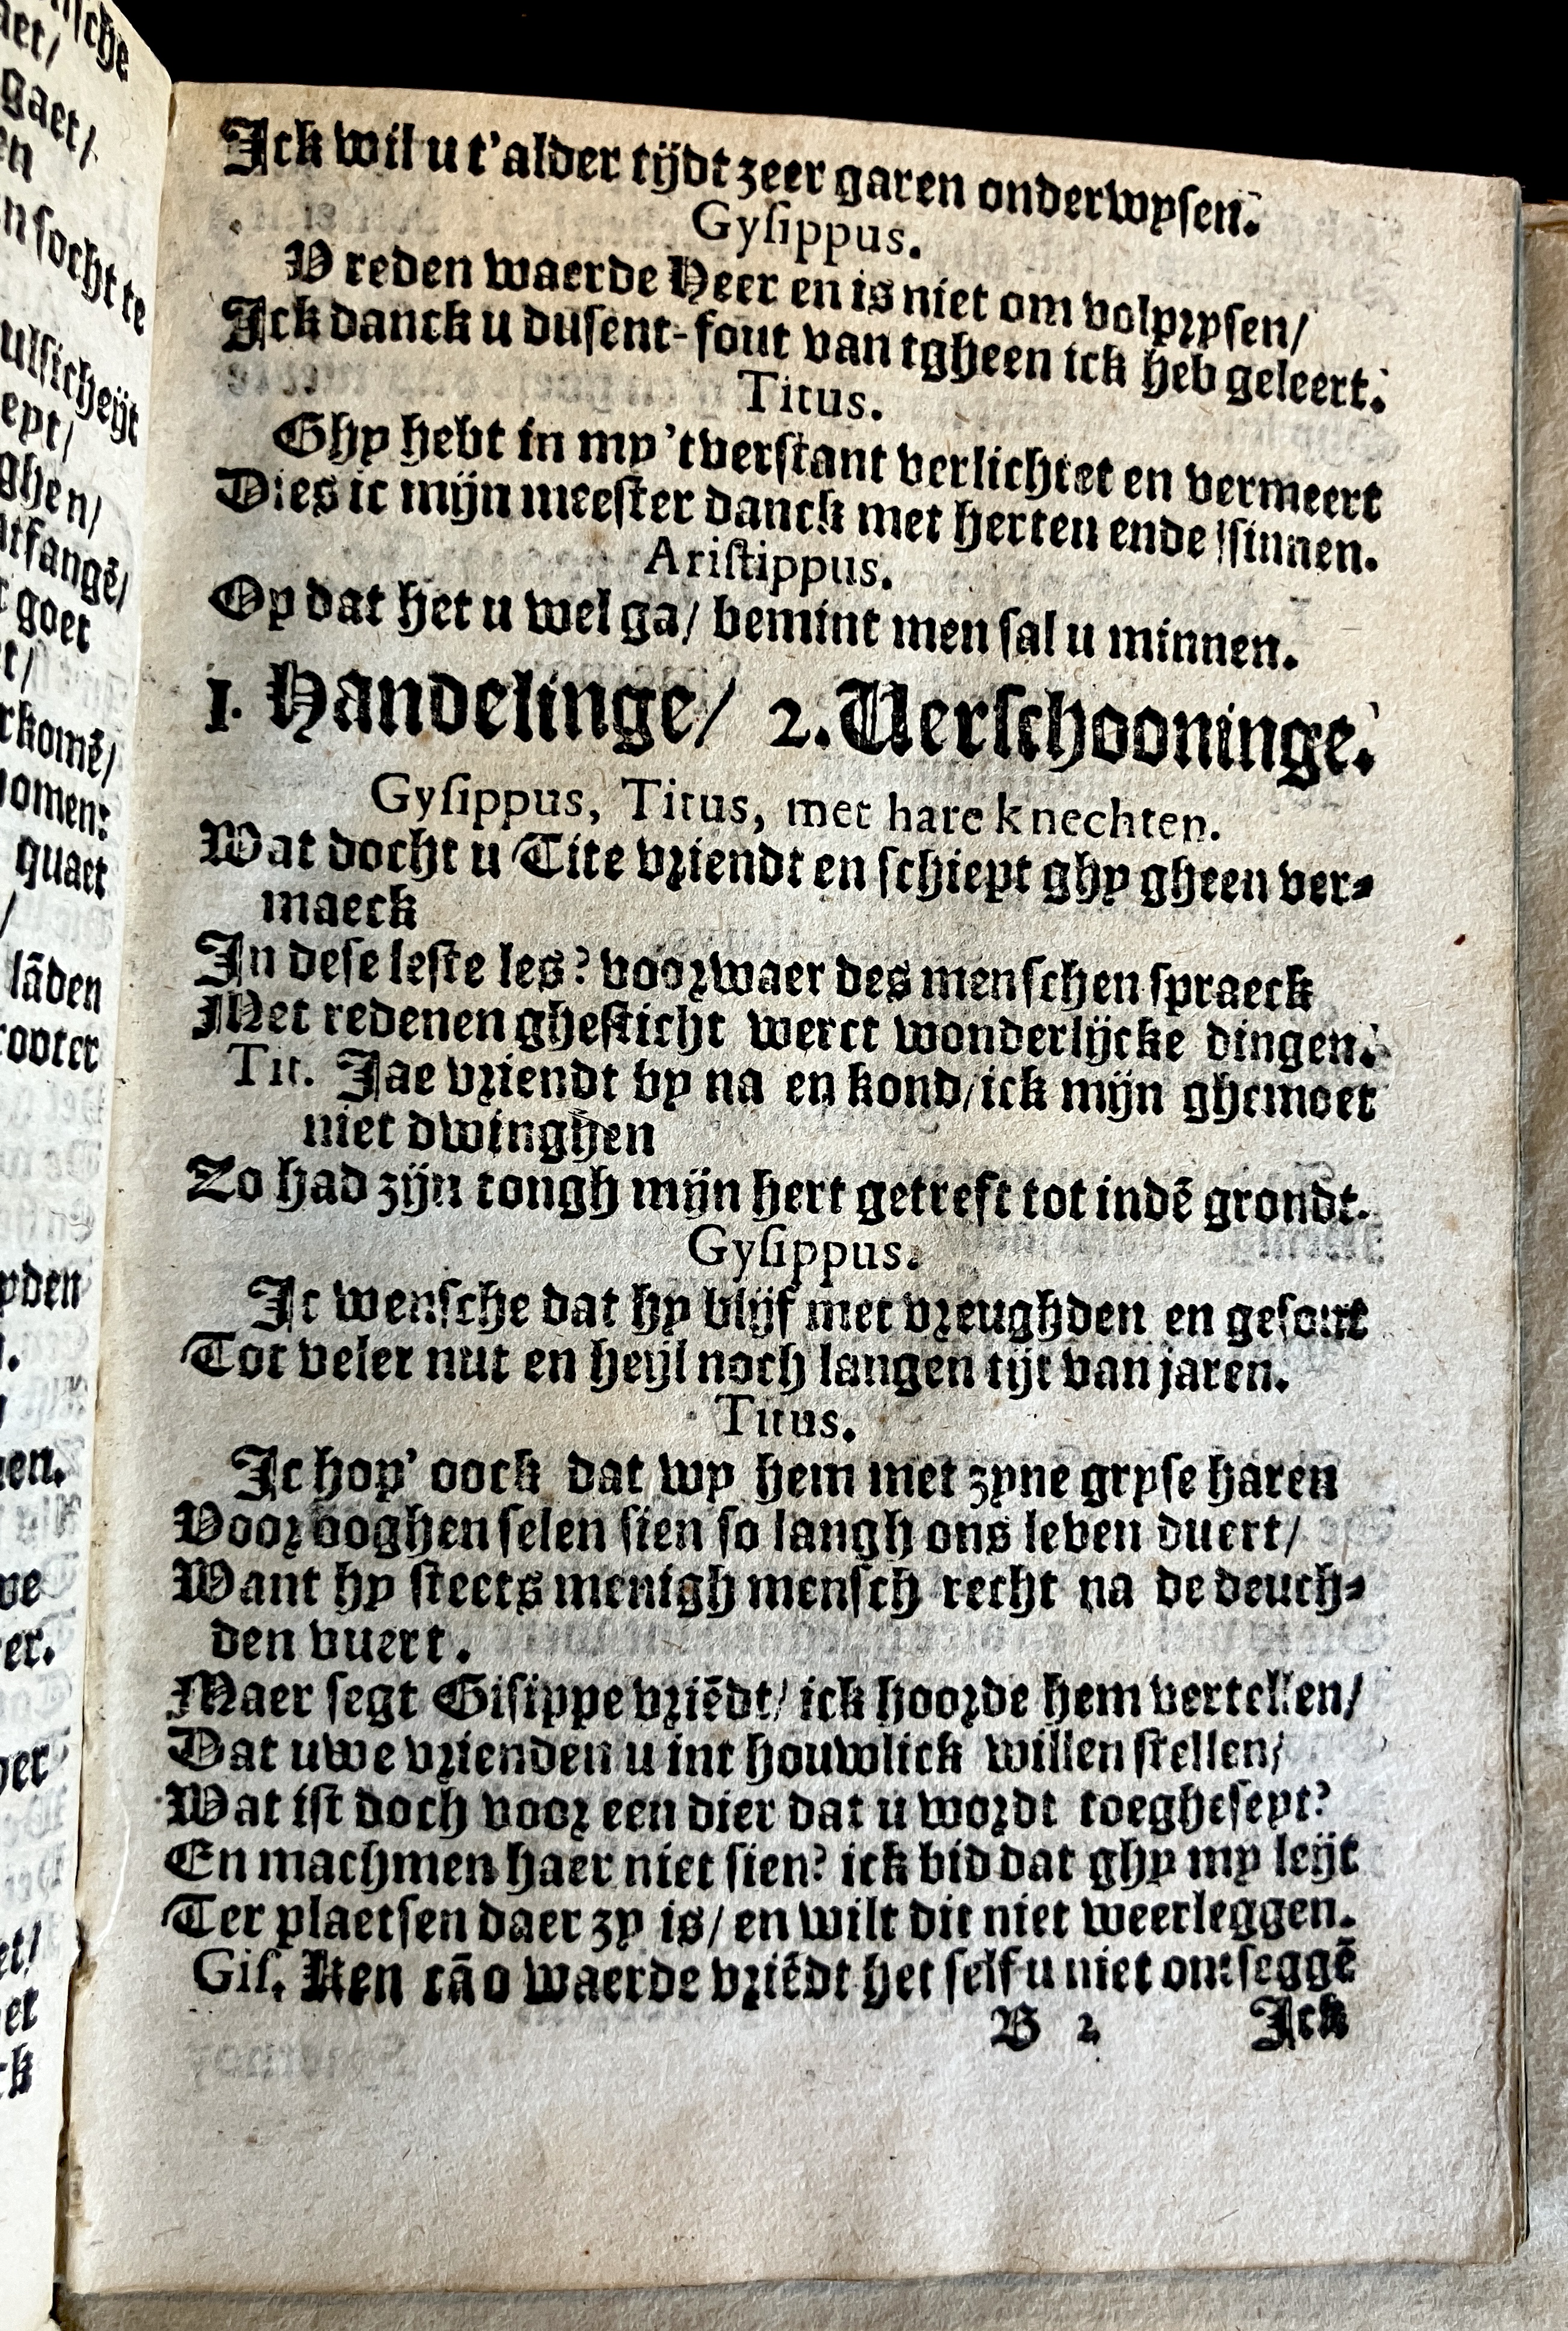 Ick wil u t'alder tijdt zeer garen onderwysen.
Gysippus.
V reden waerde Heer en is niet om volprysen/
Ick danck u dusent-fout van tgheen ick heb geleert.
Titus.
Ghy hebt in my 'tverstant verlichtet en vermeert
Dies ic mijn meester danck met herten ende sinnen.
Aristippus.
Op dat het u wel ga/ bemint men sal u minnen.
1. Handelinge/ 2. Verschooninge.
Gysippus, Titus, met hare knechten.
Wat docht u Tite vriendt en schiept ghy gheen ver-
maeck
In dese leste les? voorwaer des menschen spraeck
Met redenen ghesticht werct wonderlijcke dingen.
Tit. Jae vriendt by na en kond/ick mijn ghemoet
niet dwinghen
Zo had zijn tongh mijn hert getreft tot indē grondt.
Gysippus.
Ic wensche dat hy blijf met vreughden en gesont
Tot veler nut en heijl noch langen tijt van jaren.
Titus.
Ic hop' oock dat wy hem met zyne gryse haren
Voor ooghen selen sien so langh ons leven duert/
Want hy steets menigh mensch recht na de deuch-
den vuert.
Maer segt Gisippe vriēdt/ ick hoorde hem vertellen/
Dat uwe vrienden u int houwlick willen stellen/
Wat ist doch voor een dier dat u wordt toegheseyt?
En machmen haer niet sien? ick bid dat ghy my leijt
Ter plaetsen daer zy is/ en wilt dit niet weerleggen.
Gis. Ken cā o waerde vriēdt het self u niet ontseggē
B 2 Ick